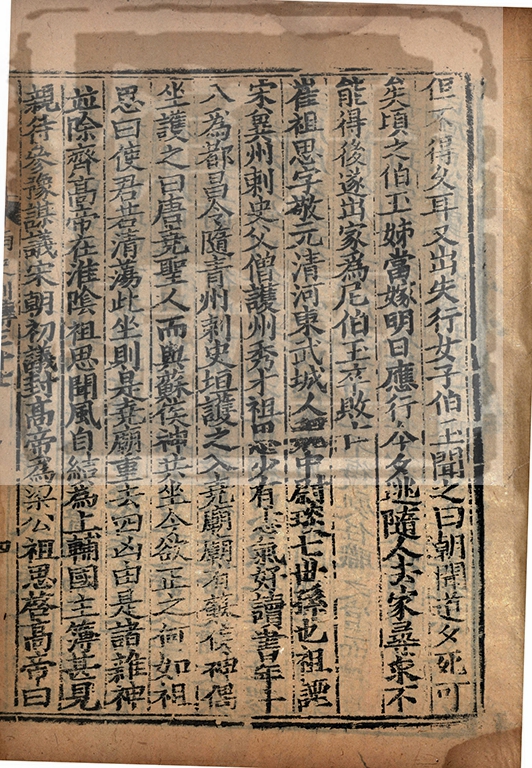 但不得久耳又出失行女子伯玉聞之曰朝聞道夕死可
矣頃之伯玉姊當嫁明日應行今夕逃隨人去家尋求不
能得後遂出家為尼伯玉卒敗亡
崔祖思字敬元清河東武城人魏中尉琰七世孫也祖諲
宋冀州刺史父僧護州秀才祖思少有志氣好讀書年十
八為都昌令隨青州刺史垣護之入堯廟廟有蘇侯神偶
坐護之曰唐堯聖人而與蘇侯神共坐今欲正之何如祖
思曰使君若清蕩此坐則是堯廟重去四凶由是諸雜神
並除齊高帝在淮陰祖思聞風自結為上輔國主簿甚見
親待參豫謀議宋朝初議封高帝為梁公祖思啓高帝曰